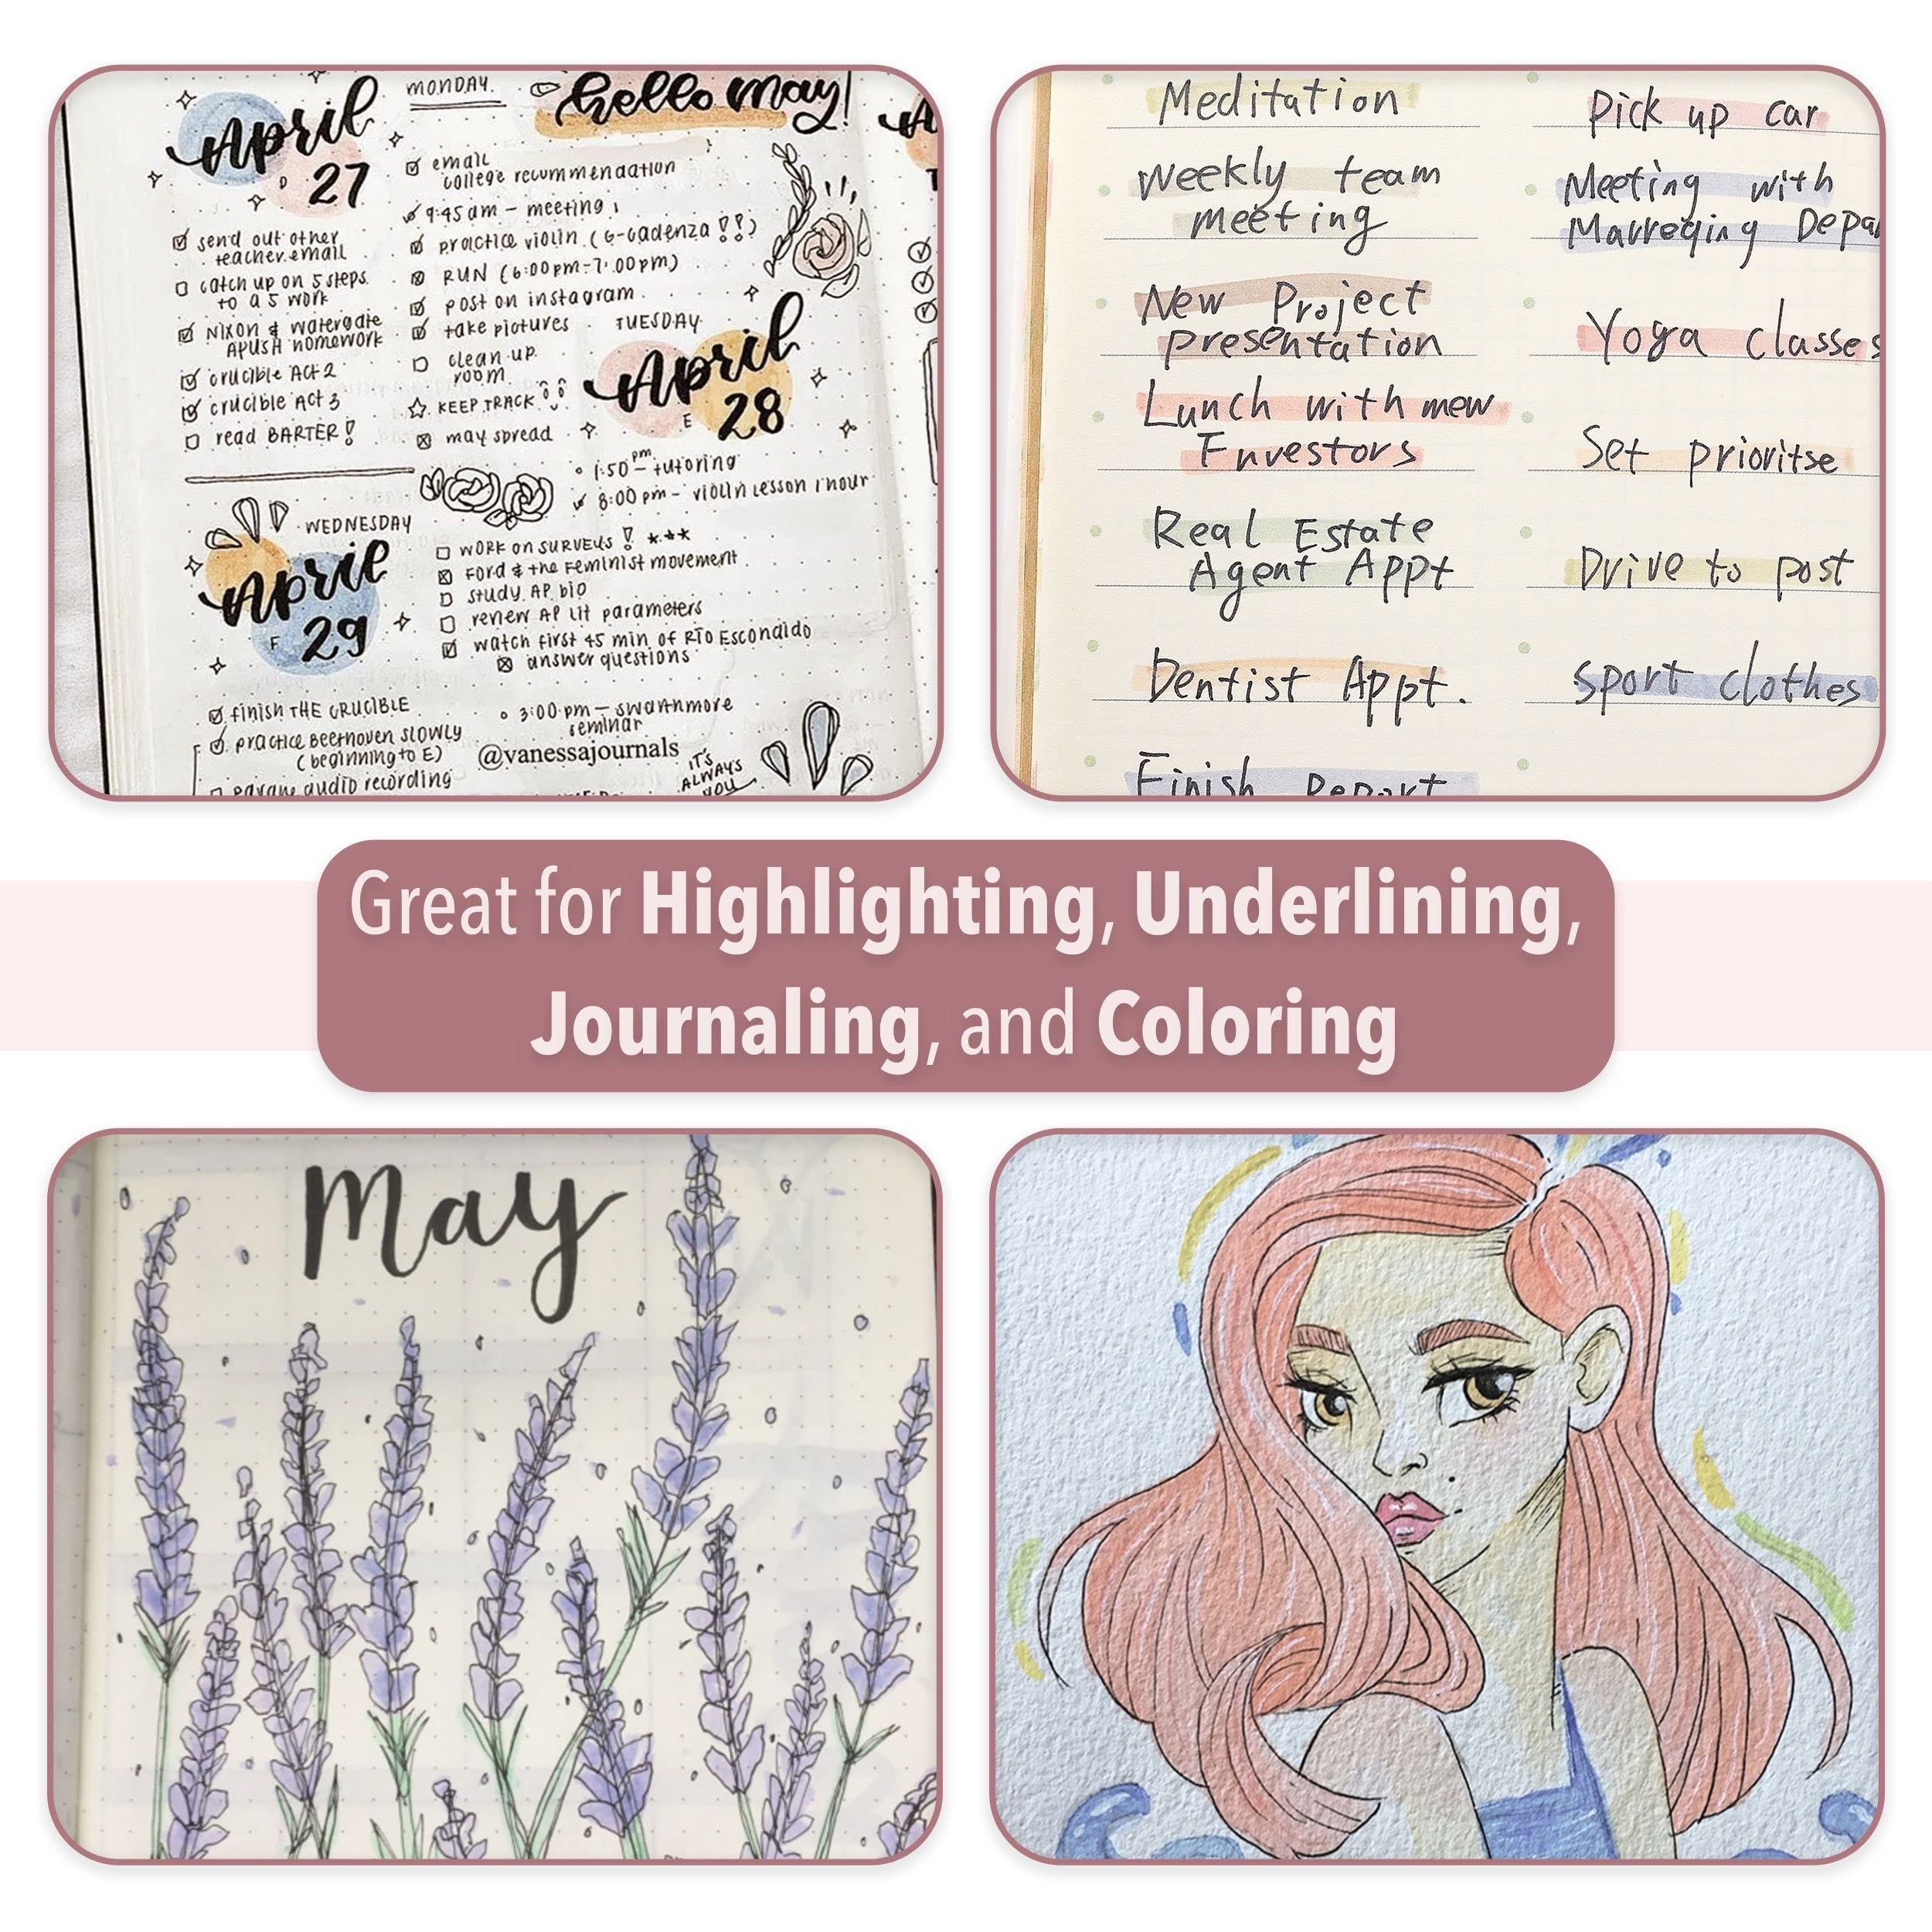 April
27
D
MONDAY.
hello may!
send out other
teacher email
catch up on 5 steps
to a 5 work
NIXON & watergate
APUSH homework
crucible Act 2
crucible Act 3
read BARTER!
email
college recommendation
9:45 am - meeting
practice violin (G-cadenza !!)
RUN (6:00pm-7:00pm)
post on instagram
take pictures
clean up
room
KEEP TRACK
may spread
TUESDAY
April
28
E
1:50 pm - tutoring
8:00 pm - violin lesson 1 hour
WEDNESDAY
April
29
F
WORK on SURVEYS ! ***
Ford & the Feminist movement
study AP bio
review AP Lit parameters
watch first 45 min of Río Escondido
answer questions
finish THE CRUCIBLE
practice Beethoven SLOWLY
(beginning to E)
audio recording
3:00 pm - swarthmore
seminar
@vanessajournals
IT'S
ALWAYS
YOU
Meditation
Weekly team
meeting
New Project
presentation
Lunch with mew
Fnvestors
Real Estate
Agent Appt
Dentist Appt.
Finish Report
Pick up car
Meeting with
Marreqing Depar
Yoga classes
Set prioritse
Drive to post
Sport clothes
Great for Highlighting, Underlining,
Journaling, and Coloring
May